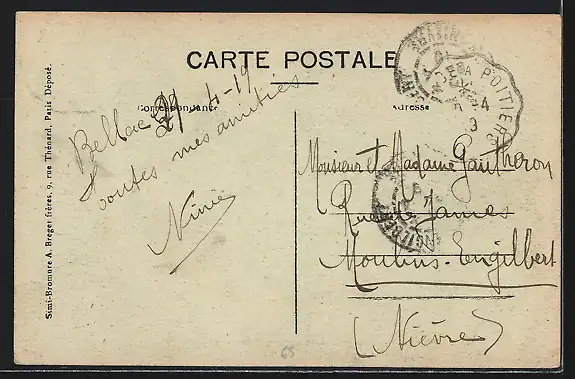 CARTE POSTALE
Correspondance
Adresse
Bellac 27-4-19
toutes mes amitiés
Ninie
Monsieur et Madame Gautheron
Rue de James
Moulins-Engilbert
(Nièvre)
POITIERS
4
9
Simi-Bromure A. Breger frères, 9, rue Thénard, Paris Déposé.
65